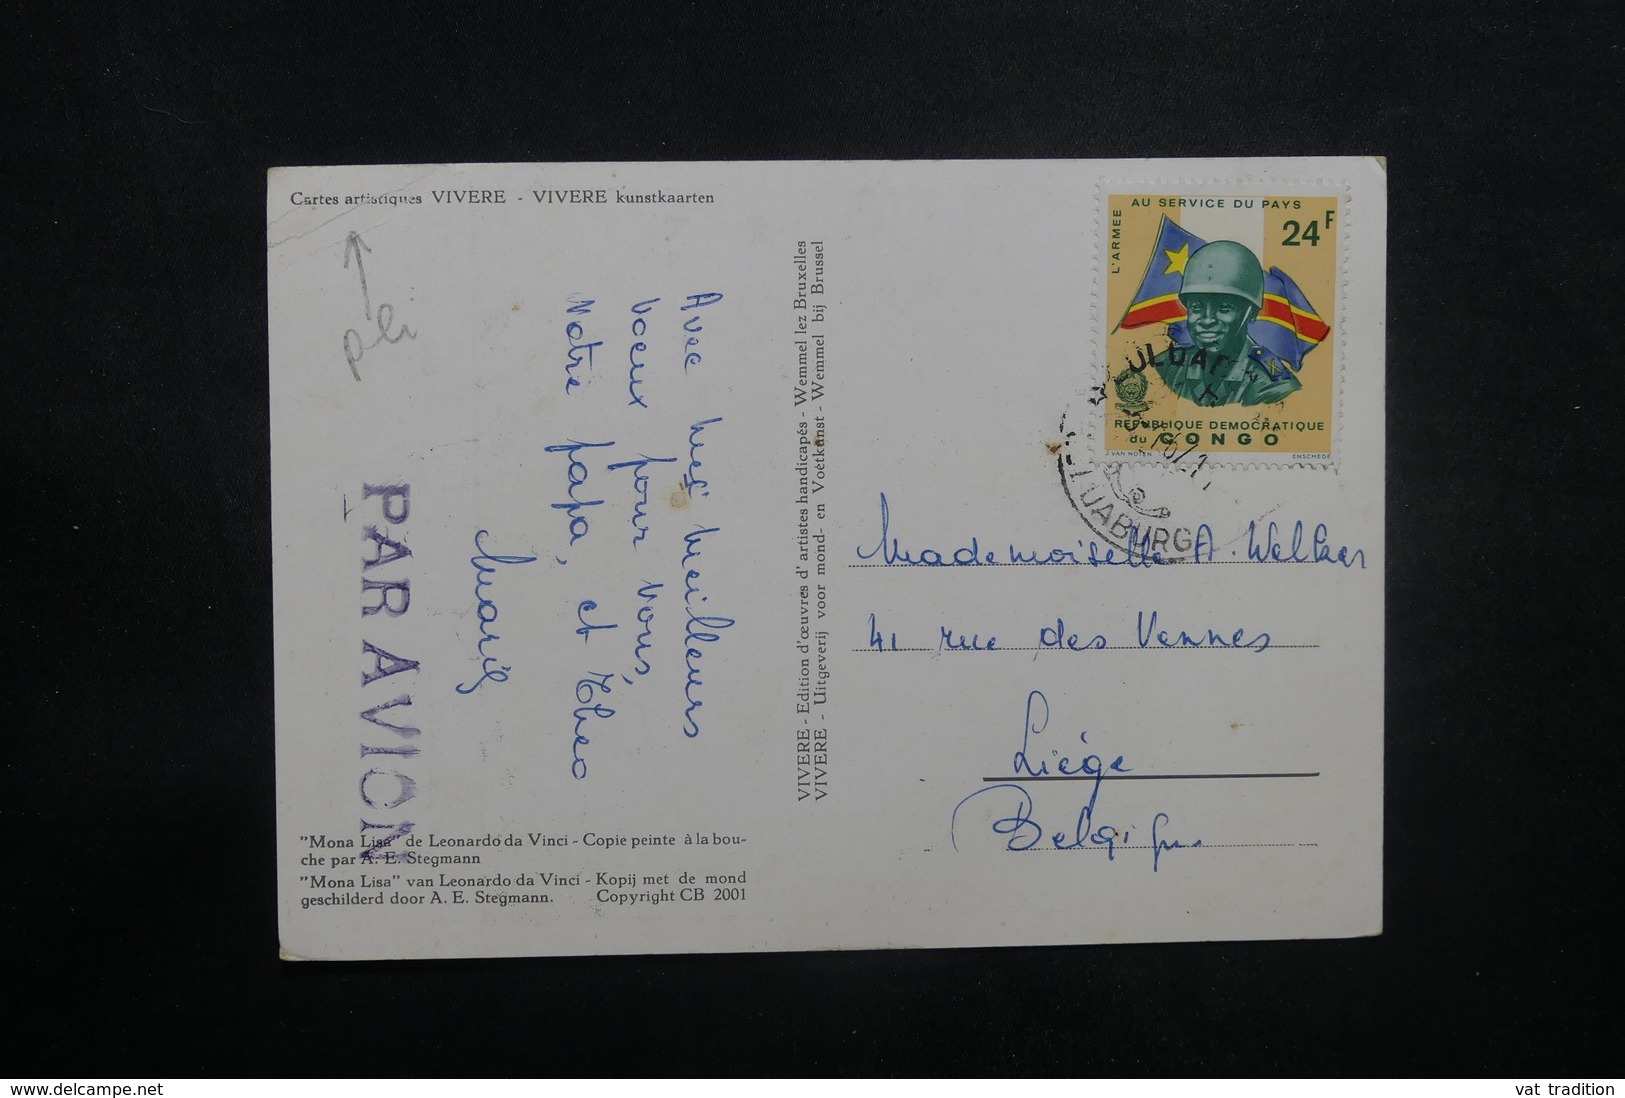 Cartes artistiques VIVERE - VIVERE kunstkaarten
pli
Avec mes meilleurs
voeux pour vous,
votre papa, et Theo
PAR AVION
"Mona Lisa" de Leonardo da Vinci - Copie peinte à la bou-
che par A. E. Stegmann
"Mona Lisa" van Leonardo da Vinci - Kopij met de mond
geschilderd door A. E. Stegmann. Copyright CB 2001
VIVERE - Edition d'œuvres d'artistes handicapés - Wemmel lez Bruxelles
VIVERE - Uitgeverij voor mond- en Voetkunst - Wemmel bij Brussel
L'ARMEE AU SERVICE DU PAYS
24F
REPUBLIQUE DEMOCRATIQUE
du CONGO
J. VAN NOTEN ENSCHEDE
LULUABURG
Mademoiselle A. Welker
41 rue des Vennes
Liége
Belgique
delcampe.net
vat_tradition